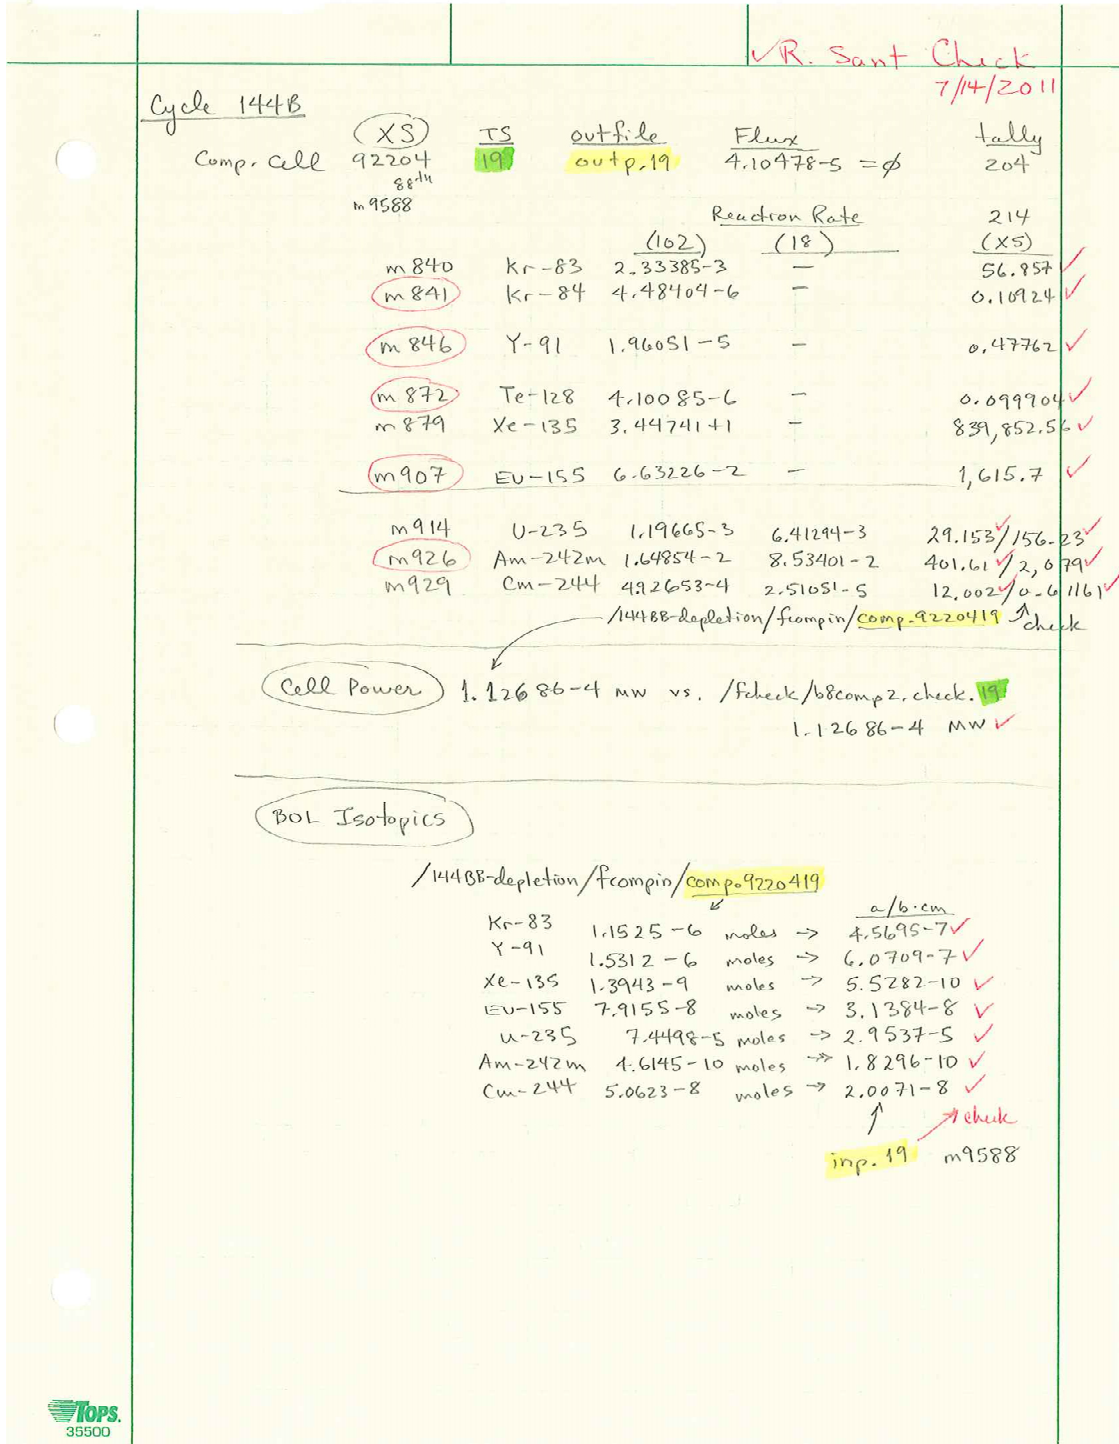 ✓R. Sant Check
7/14/2011
Cycle 144B
(XS) TS outfile Flux tally
Comp. Cell 92204 19 outp.19 4.10478-5 = φ 204
88th
m9588
Reaction Rate 214
(102) (18) (XS)
m840 Kr-83 2.33385-3 — 56.857 ✓
m841 Kr-84 4.48404-6 — 0.10924 ✓
m846 Y-91 1.96051-5 — 0.47762 ✓
m872 Te-128 4.10085-6 — 0.099904 ✓
m879 Xe-135 3.44741+1 — 839,852.56 ✓
m907 EU-155 6.63226-2 — 1,615.7 ✓
m914 U-235 1.19665-3 6.41294-3 29.153✓/156.23✓
m926 Am-242m 1.64854-2 8.53401-2 401.61✓/2,079✓
m929 Cm-244 4.92653-4 2.51051-5 12.002✓/0.61161✓
/144BB-depletion/fcompin/comp.9220419 check
Cell Power 1.12686-4 MW vs. /fcheck/b8comp2.check.19
1.12686-4 MW ✓
BOL Isotopics
/144BB-depletion/fcompin/comp.9220419
a/b·cm
Kr-83 1.1525-6 moles → 4.5695-7 ✓
Y-91 1.5312-6 moles → 6.0709-7 ✓
Xe-135 1.3943-9 moles → 5.5282-10 ✓
EU-155 7.9155-8 moles → 3.1384-8 ✓
U-235 7.4498-5 moles → 2.9537-5 ✓
Am-242m 4.6145-10 moles → 1.8296-10 ✓
Cm-244 5.0623-8 moles → 2.0071-8 ✓
check
inp.19 m9588
TOPS.
35500